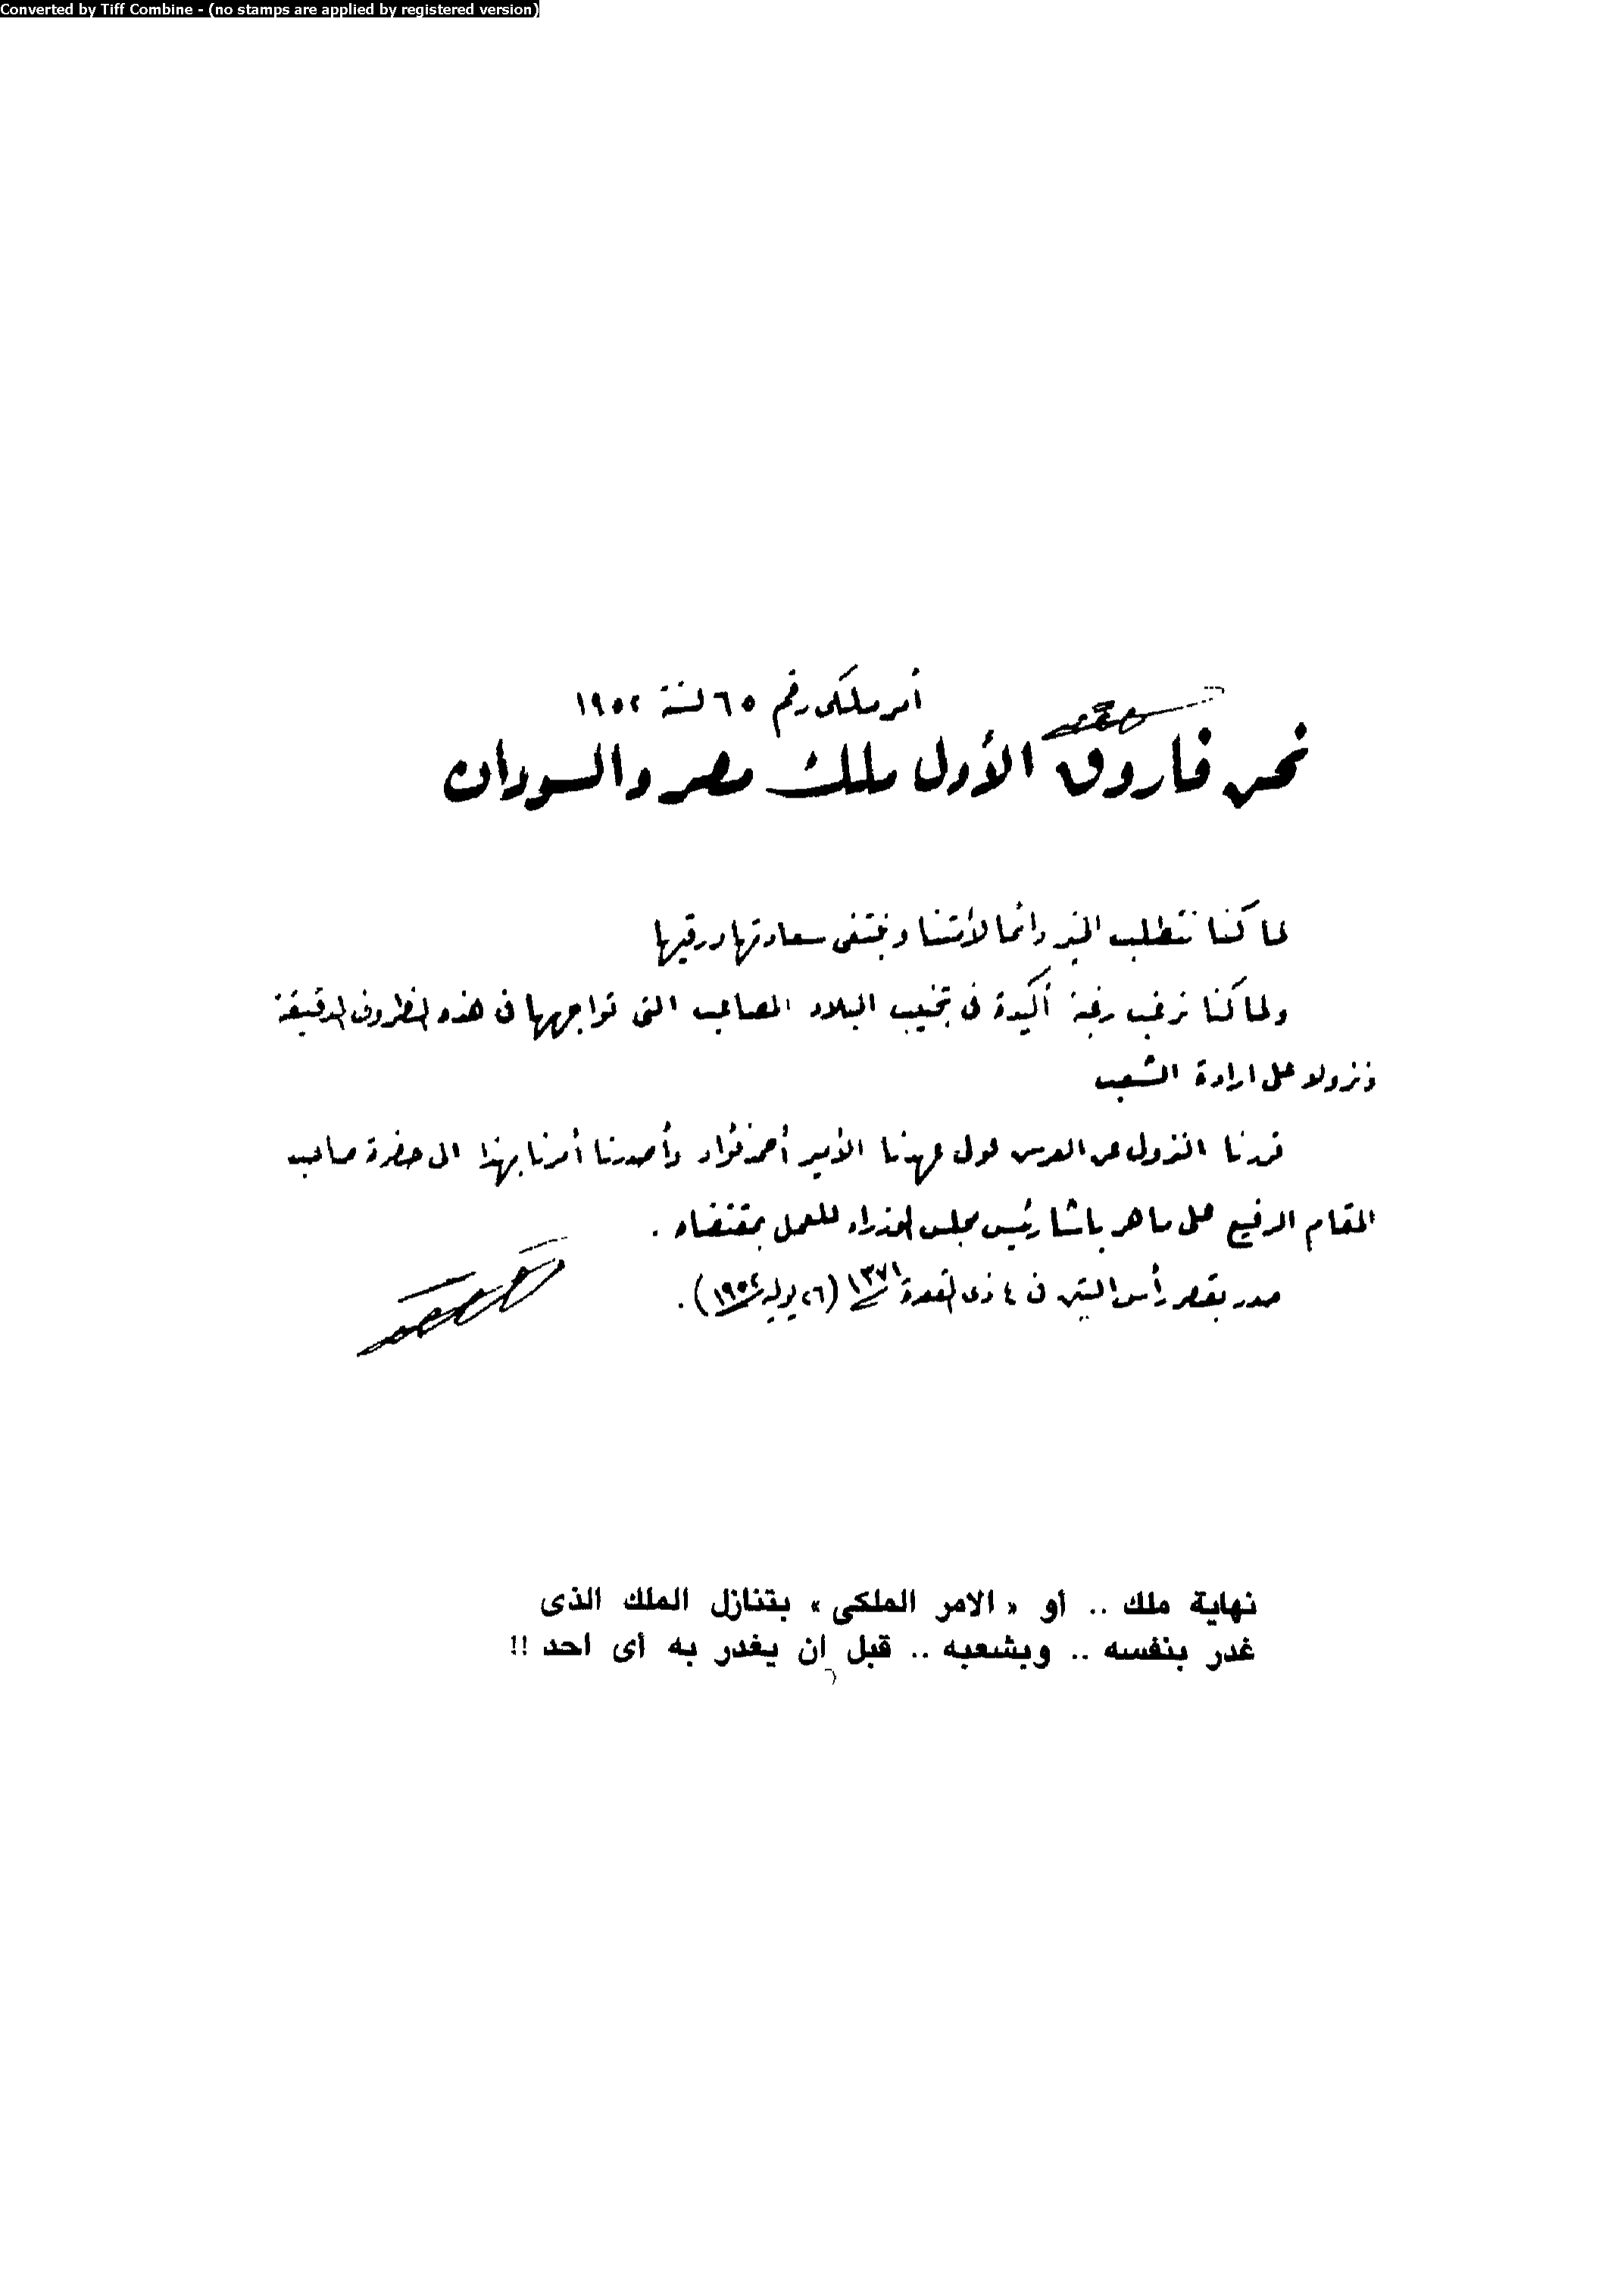 Converted by Tiff Combine - (no stamps are applied by registered version)
أمر ملكى رقم ٦٥ لسنة ١٩٥٢
نحن فاروق الأول ملك مصر والسودان
لما كنا نتطلب الخير دائما لأمتنا ونبتغى سعادتها ورقيها
ولما كنا نرغب رغبة أكيدة فى تجنيب البلاد المصاعب التى تواجهها فى هذه الظروف الدقيقة
ونزولا على ارادة الشعب
قررنا النزول عن العرش لولى عهدنا الأمير أحمد فؤاد وأصدرنا أمرنا بهذا الى حضرة صاحب
المقام الرفيع على ماهر باشا رئيس مجلس الوزراء للعمل بمقتضاه .
صدر بقصر رأس التين فى ٤ ذى القعدة ١٣٧١ (٢٦ يوليه ١٩٥٢) .
نهاية ملك .. أو « الامر الملكى » بتنازل الملك الذى
غدر بنفسه .. وبشعبه .. قبل ان يغدر به أى احد !!